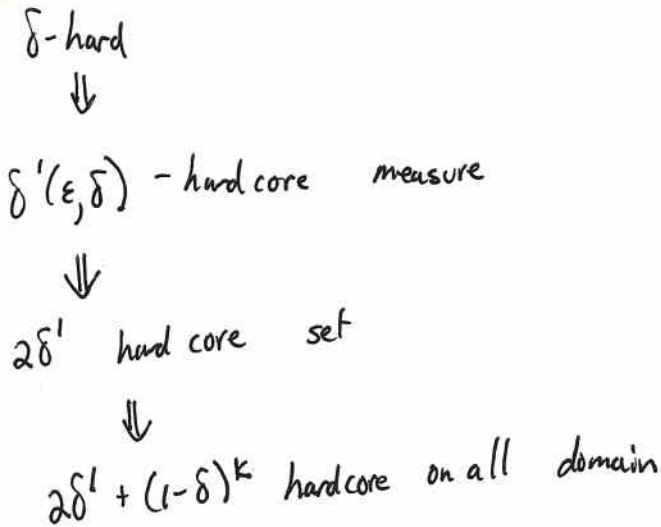 δ-hard
⇓
δ'(ε,δ) - hardcore measure
⇓
2δ' hard core set
⇓
2δ' + (1-δ)^k hardcore on all domain